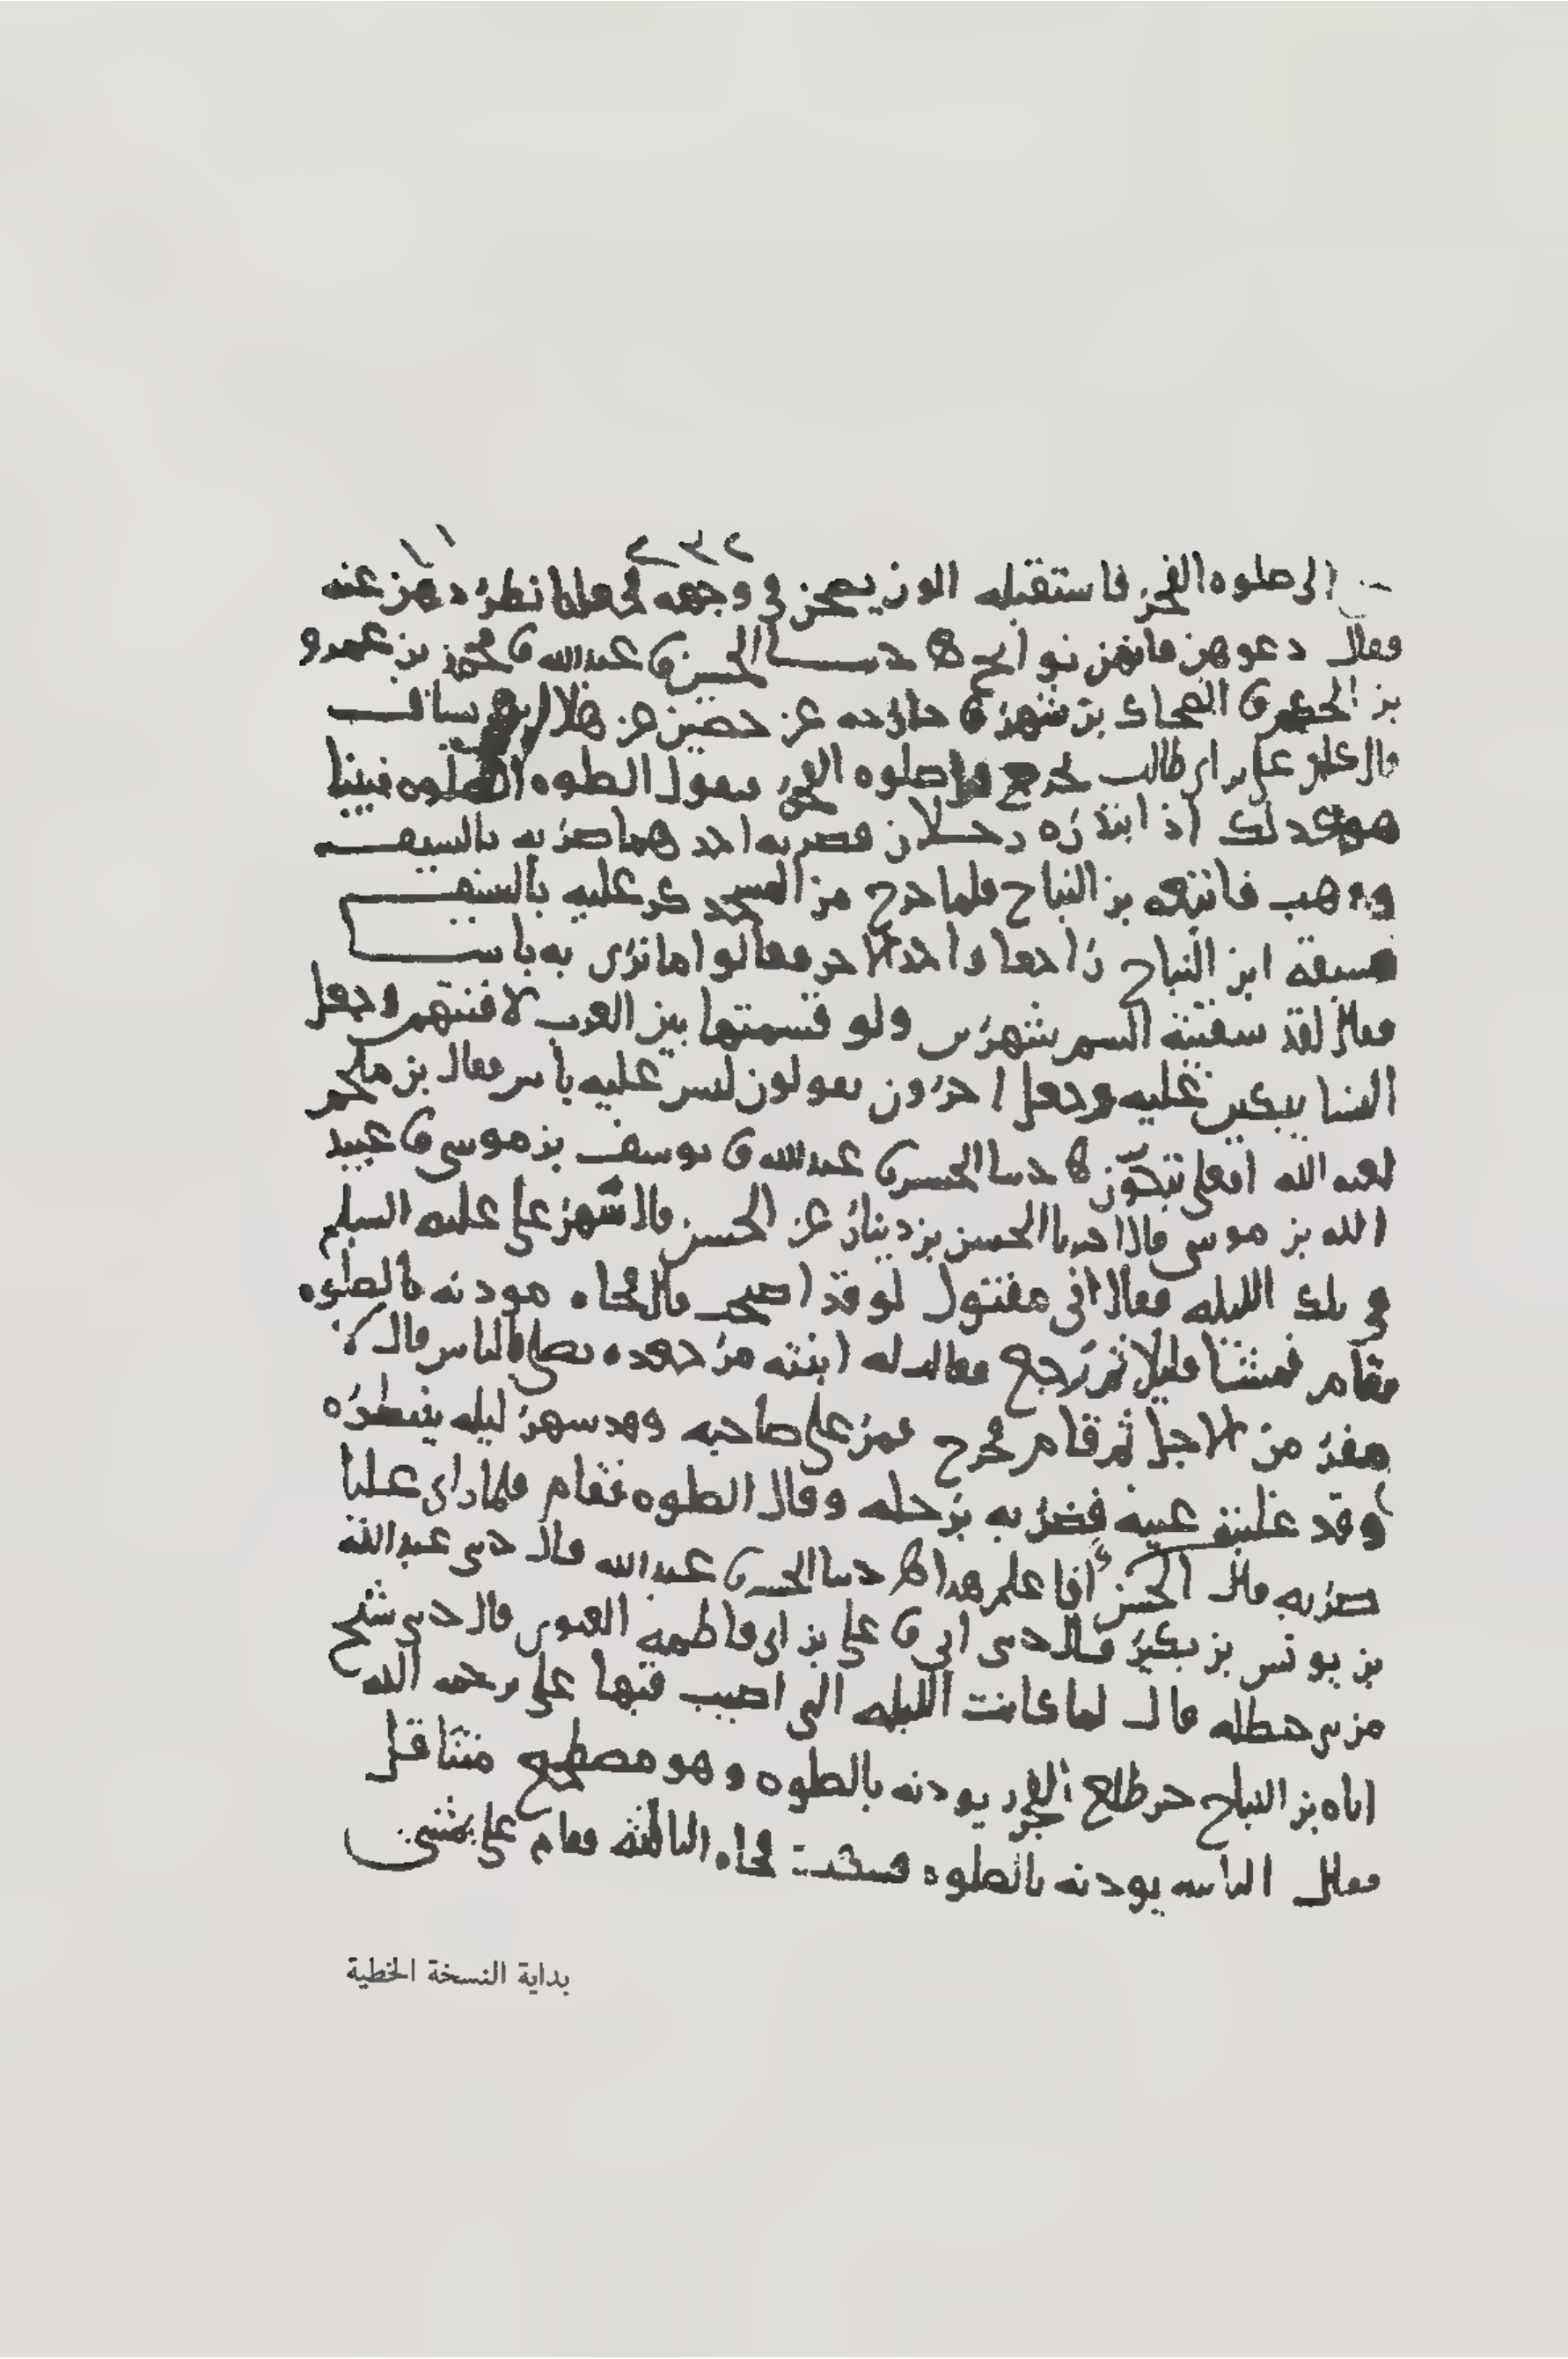 ٢٣٢ ١١
الى صلوه الفجر فاستقبله الوز يصحن في وجهه فجعلنا نطردهن عنه
فقال دعوهن فانهن نوايح حدثنا الحسن عبدالله محمد بن عمرو
بن الحكم الضحاك بن شهر خارجه عن حصين عن هلال بن يساف
قال كان علي بن ابي طالب يخرج الى صلوه الفجر يقول الصلوه الصلوه فبينا
هو كذلك اذ ابتدره رجلان فضربه احدهما ضربه بالسيف
وذهب فاتبعه بن النباح فلما خرج من المسجد كر عليه بالسيف
فسبقه ابن النباح راجعا واخذ الاخر فقالوا ما نرى به باسا
فقال لقد سقيته السم شهرين ولو قسمتها بين العرب لافنتهم وجعل
النسا يبكين عليه وجعل اخرون يقولون ليس عليه باس فقال بن ملجم
لعنه الله افعلي تبكون حدثنا الحسن عبدالله يوسف بن موسى عبيد
الله بن موسى قال اخبرنا الحسن بن دينار عن الحسن قال سهر علي عليه السلم
في تلك الليله فقال اني مقتول لو قد اصبحت قال فجاه موذنه بالصلوه
فقام فمشى قليلا ثم رجع فقالت له ابنته مر جعده يصلي بالناس قال لا
مفر من الاجل ثم قام فخرج فمر على صاحبه وقد سهر ليله ينتظره
وقد غلبته عينه فضربه برجله وقال الصلوه فقام فلما راى عليا
ضربه قال الحسن انا علم هذا حدثنا الحسن عبدالله قال حدثني عبدالله
بن يونس بن بكير قال حدثني ابي علي بن ابي فاطمه الغنوي قال حدثني شيخ
من بني حنظله قال لما كانت الليله التي اصيب فيها علي رحمه الله
اتاه بن النباح حين طلع الفجر يوذنه بالصلوه وهو مضطجع متثاقل
فقال الثانيه يوذنه بالصلوه فسكت فجاه الثالثه فقام علي يمشي
بداية النسخة الخطية